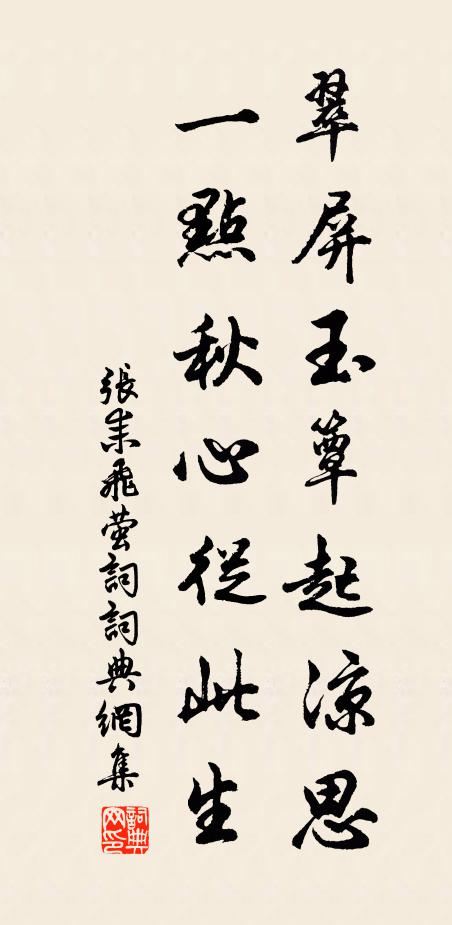 翠屏玉簟起涼思
一點秋心從此生
張耒飛螢詞詞典網集
詞典網印